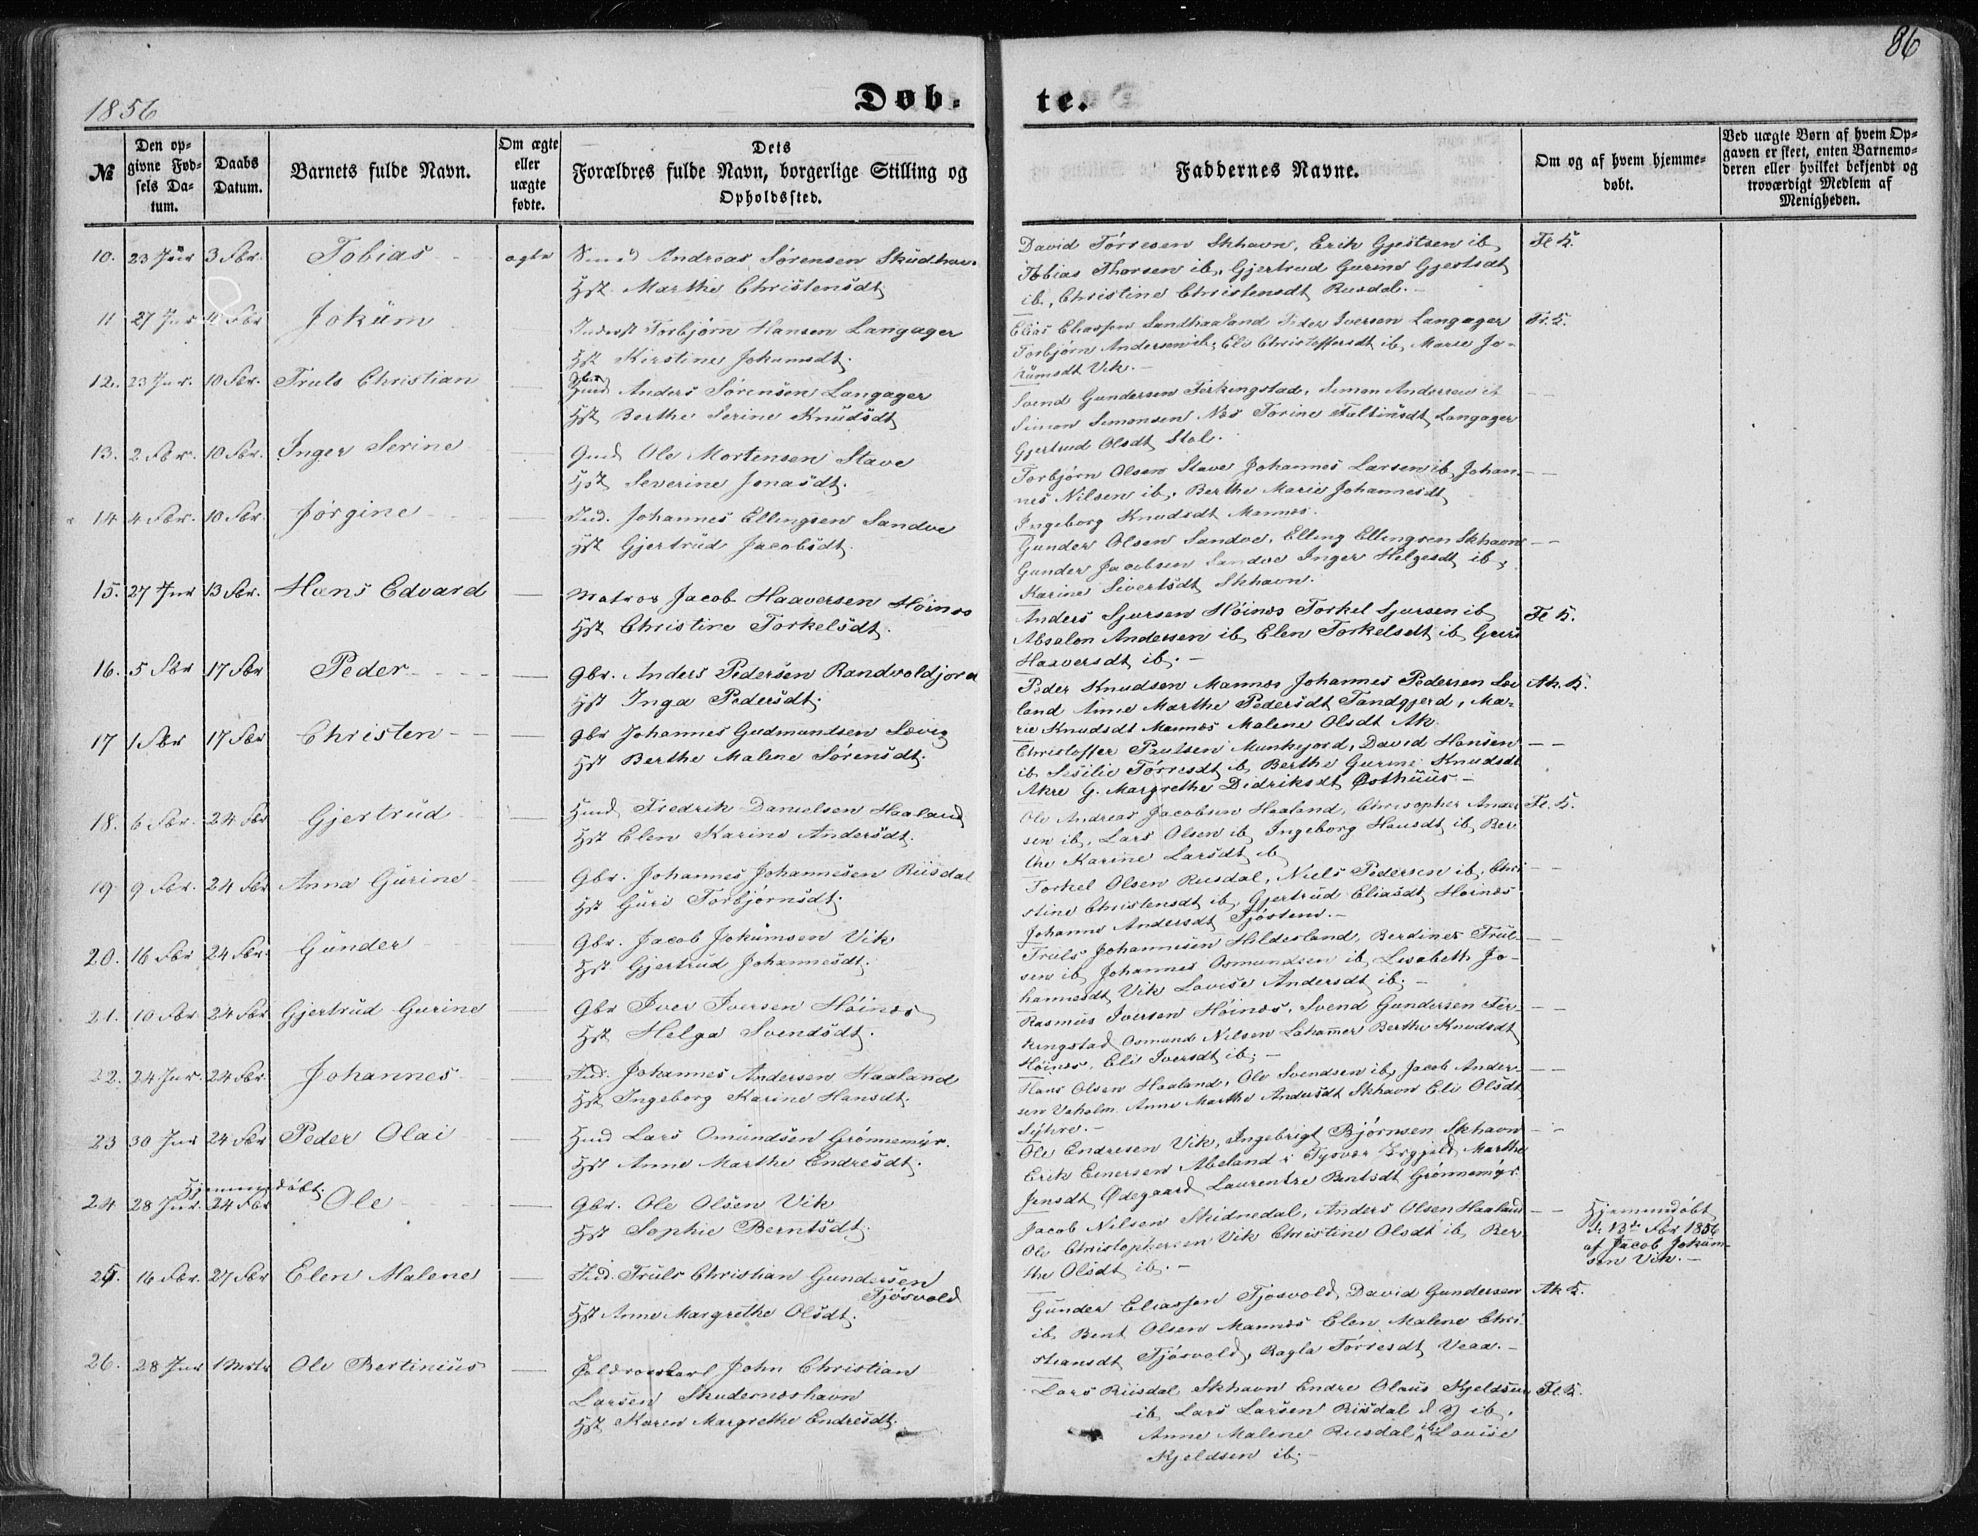 86
1856
Døb-
te.
№ Den opgivne Fødsels Datum. Daabs Datum. Barnets fulde Navn. Om ægte eller uægte fødte. Dets Forældres fulde Navn, borgerlige Stilling og Opholdssted. Faddernes Navne. Om og af hvem hjemmedøbt. Ved uægte Børn af hvem Opgaven er skeet, enten Barnemoderen eller hvilket bekjendt og troværdigt Medlem af Menigheden.
10. 23 Jnr 3 Fbr. Tobias ægte Andreas Sørensen
Hst. Marthe Christensdt.
David Tørresen Skhavn, Erik Gjestsen ib
Tobias Thorsen ib, Gjertrud Gurine Gjestsdt
ib, Christine Christensdt Rusdal.
11 27 Jnr Fbr Jokum — Torbjørn Hansen Langager
Hst Kirstine Johansdt.
Elias Eliassen Sandhaaland Peder Iversen Langager
Torbjørn Andersen ib, Eli Christoffersdt ib, Marie Jo-
kumsdt Vik.—
12. 23 Jnr. 10 Fbr. Truls Christian — Anders Sørensen Langager
Hst Berthe Serine Knudsdt
Svend Gundersen Ferkingstad, Simon Andersen ib
Simon Simonsen Næs Torine Faltinsdt Langager
Gjertrud Olsdt Stol.
13. 2 Fbr. 10 Fbr. Inger Serine — Gmd Ole Mortensen Stave
Hst Severine Jonasdt.
Torbjørn Olsen Stave Johannes Larsen ib, Johan-
nes Nilsen ib, Berthe Marie Johannesdt
Ingeborg Knudsdt Mannes.
14 4 Fbr. 10 Fbr. Jørgine — Ind. Johannes Ellingsen Sandve
Hst Gjertrud Jacobsdt.
Gunder Olsen Sandve, Elling Ellingsen Skhavn
Gunder Jacobsen Sandve Inger Helgesdt ib,
Karine Sivertsdt Skhavn.
15. 27 Jnr 13 Fbr. Hans Edvard — Matros Jacob Haaversen Høines
Hst Christine Torkelsdt.
Anders Sjursen Høines Torkel Sjursen ib
Absalon Andersen ib, Elen Torkelsdt ib
Haaversdt ib.—
16. 5 Fbr 17 Fbr Peder — Gbr. Anders Pedersen
Hst Inga Pedersdt.
Peder Knudsen Mannes Johannes Pedersen
land Anne Marthe Pedersdt Tandgjerd, Ma-
rie Knudsdt Mannes Malene Olsdt Ak.
17 1 Fbr 17 Fbr Christen — Gbr Johannes Gudmundsen Sævig
Hst Berthe Malene Sørensdt.
Christoffer Paulsen Munkejord, David Hansen
ib, Sesilie Tørresdt ib, Berthe Gurine Knudsdt
Akre G. Margrethe Didriksdt Østhuus—
18. 6 Fbr. 24 Fbr Gjertrud — Hmd Fredrik Danielsen Haaland
Hst Elen Karine Andersdt.
Ole Andreas Jacobsen Haaland, Christopher Ander-
sen ib, Lars Olsen ib, Ingeborg Hansdt ib, Ber-
the Karine Larsdt ib
19 9 Fbr. 24 Fbr Anna Gurine — Gbr. Johannes Johannesen Riisdal
Hst Guri Torbjørnsdt.
Torkel Olsen Rusdal, Niels Pedersen ib, Chri-
stine Christensdt ib, Gjertrud Eliasdt Høines
Johanne Andersdt
20. 16 Fbr 24 Fbr. Gunder — Gbr. Jacob Jokumsen Vik
Hst. Gjertrud Johannesdt.
Truls Johannesen Hilderland, Berdines Trul-
sen ib, Johannes Osmundsen ib, Lisabeth Jo-
hannesdt Vik Lovise Andersdt ib.—
21. 10 Fbr 24 Fbr Gjertrud Gurine — Gbr Iver Iversen Høines
Hst Helga Svendsdt.
Rasmus Iversen Høines, Svend Gundersen Fer-
kingstad Osmund Nilsen Lahamer Berthe Knudsdt
Høines, Eli Iversdt ib.—
22. 24 Jnr. 24 Fbr. Johannes — Ind. Johannes Andersen Haaland
Hst Ingeborg Karine Hansdt.
Hans Olsen Haaland, Ole Svendsen ib, Jacob Ander-
sen Vaholm. Anne Marthe Andersdt Skhavn Eli Olsdt
Syhre.—
23 30 Jnr 24 Fbr Peder Olai — Hmd Lars Omundsen Grønnemyr.
Hst Anne Marthe Endresdt.
Ole Endresen Vik, Ingebrigt Bjørnsen Skhavn
Erik Einersen Abeland i Tysvær Marthe
Jensdt Ødegaard Grønnemyr
24 28 Jnr. 24 Fbr Hjemmedøbt Ole — Gbr. Ole Olsen Vik
Hst Sophie Berntsdt.
Jacob Nilsen Skidnedal, Anders Olsen Haaland
Ole Christophersen Vik Christine Olsdt ib, Ber
the Olsdt ib.—
Hjemmedøbt
d. 13de Fbr 1856
af Jacob Jokum-
sen Vik.—
25. 16 Fbr. 27 Fbr Elen Malene — Ind. Truls Christian Gundersen
Tjøsvold
Hst Anne Margrethe Olsdt.
Gunder Eliassen Tjøsvold, David Gundersen
ib, Bent Olsen Mannes Elen Malene Chri-
stiansdt Tjøsvold, Ragla Tørresdt Veaa.—
26. 28 Jnr Ole Bertinius — John Christian
Larsen Skudeneshavn
Hst Karen Margrethe Endresdt.
Lars Riisdal Skhavn Endre Olaus Kjeldsen
ib Lars Larsen Riisdal d y ib,
Anne Malene Rusdal ib Lovise
Kjeldsen ib.—